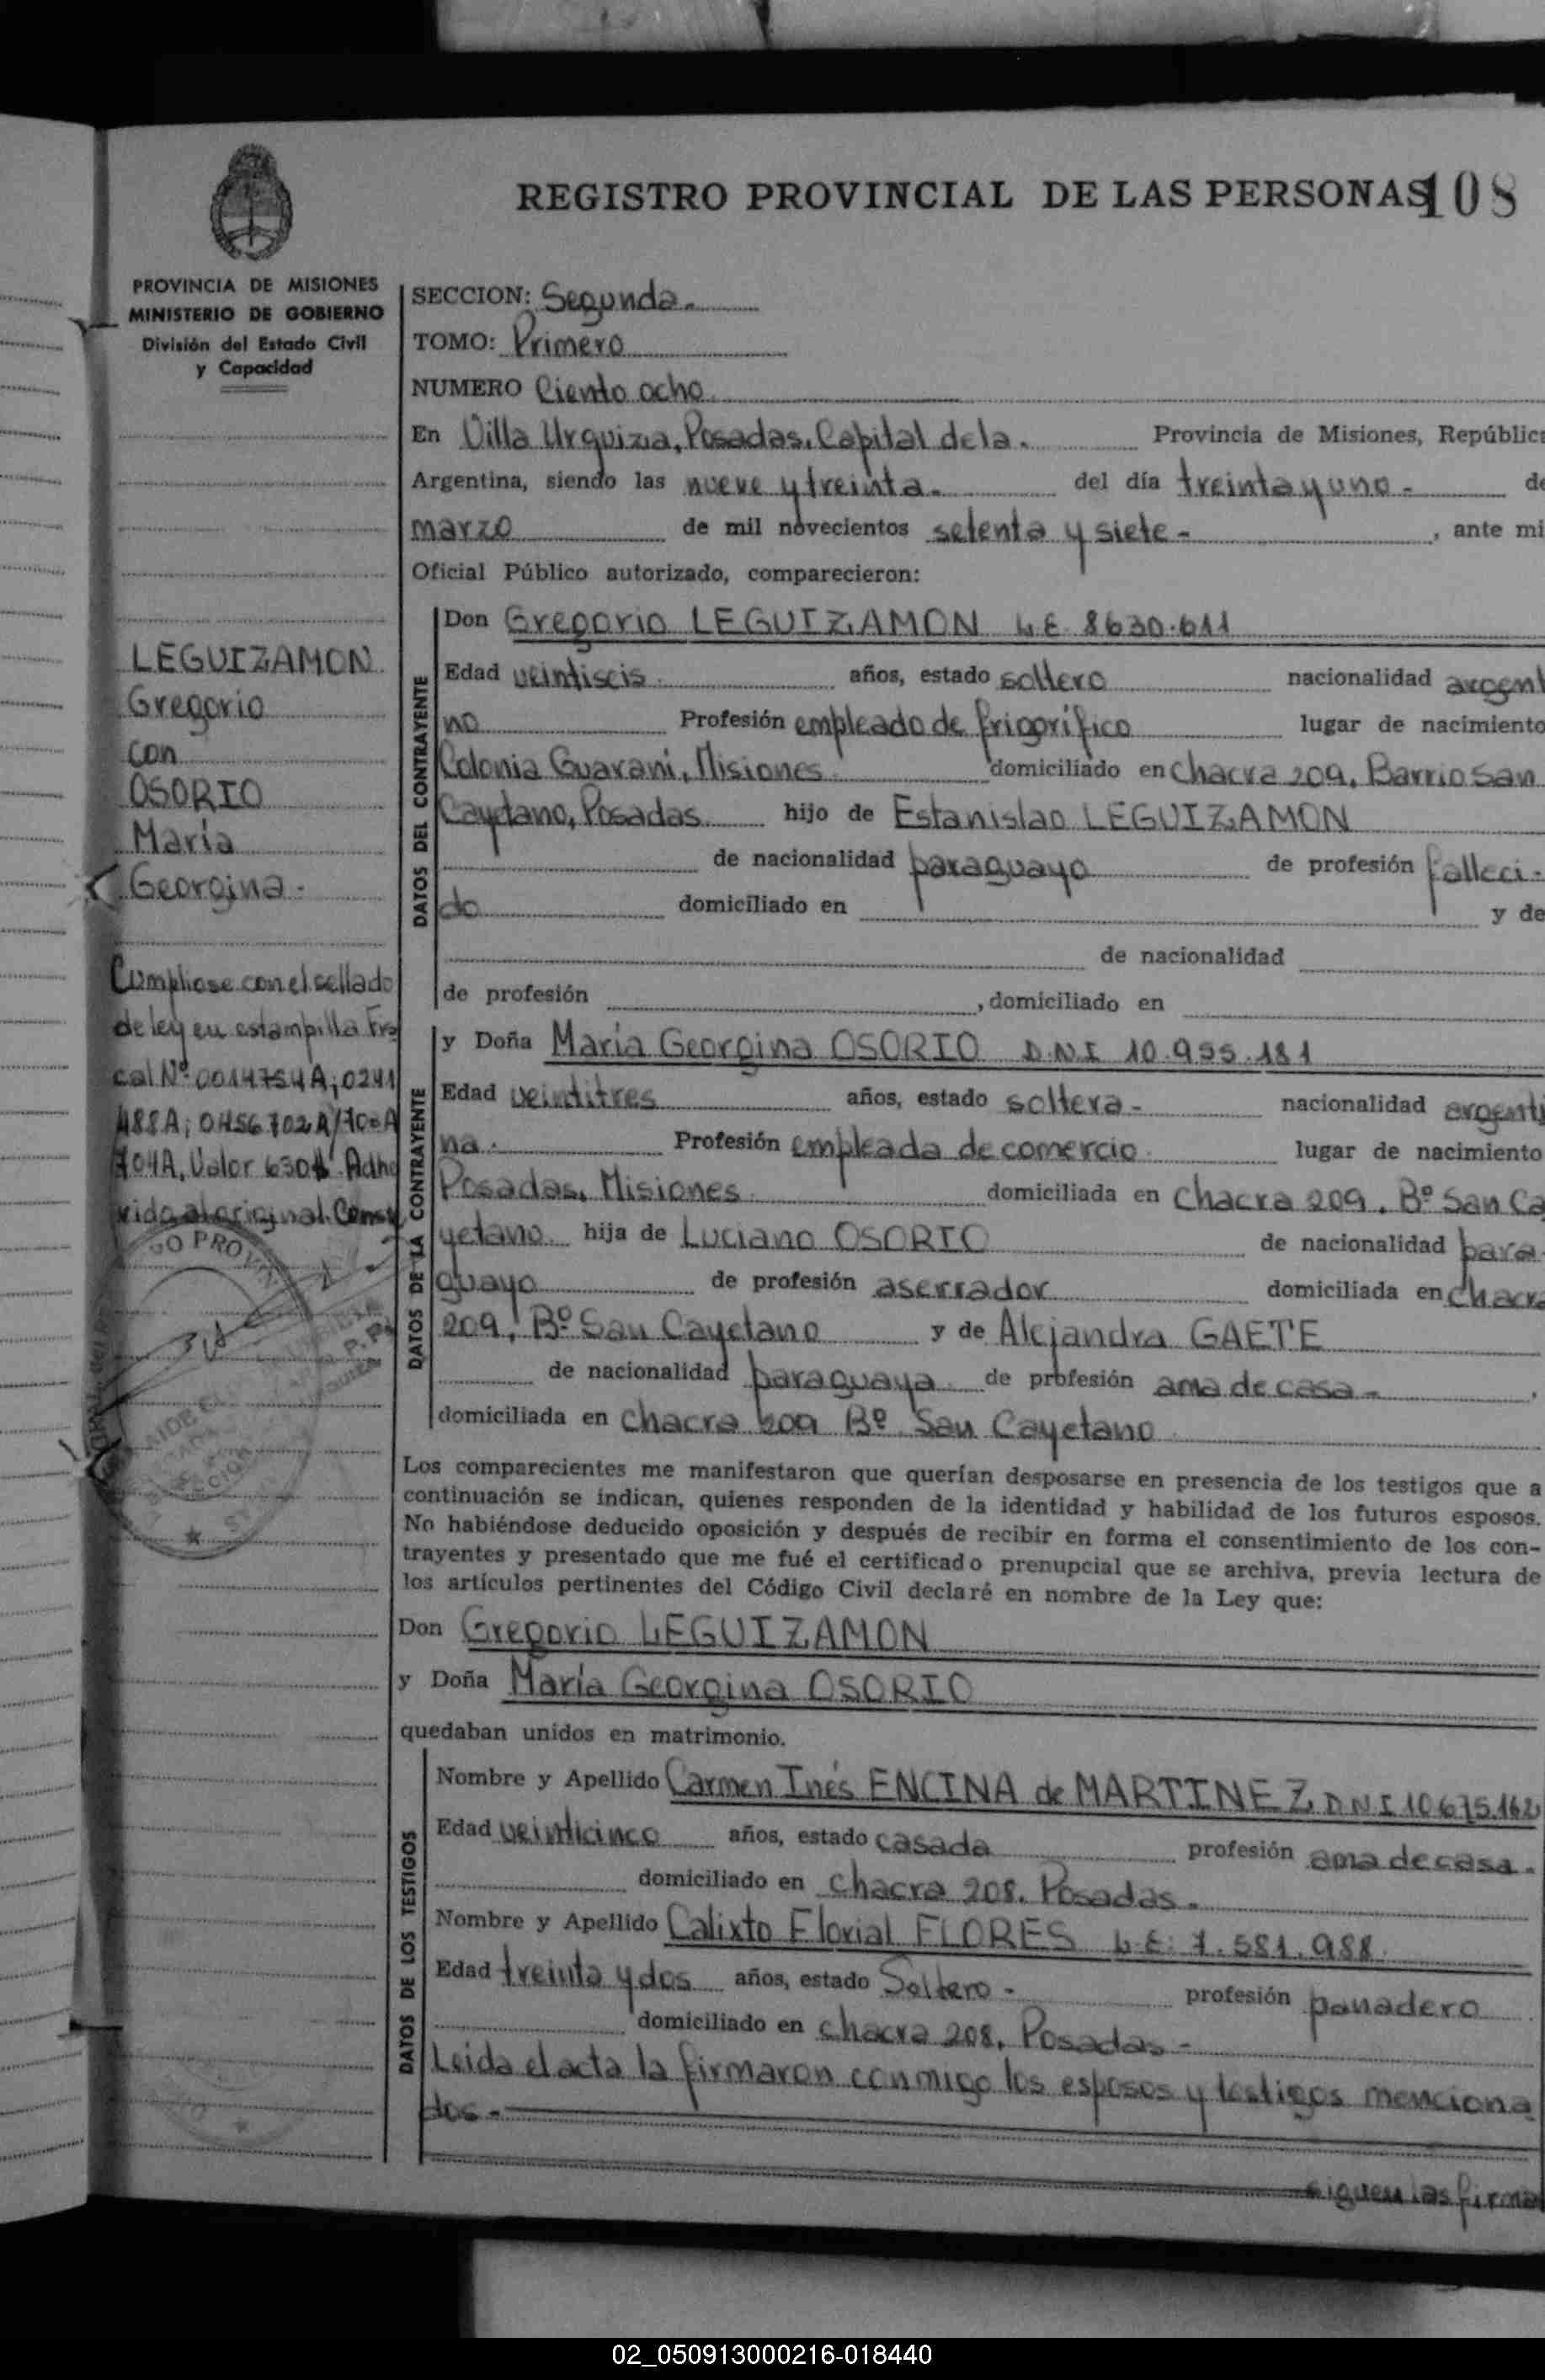 REGISTRO PROVINCIAL DE LAS PERSONAS 108
PROVINCIA DE MISIONES
MINISTERIO DE GOBIERNO
División del Estado Civil
y Capacidad
SECCION: Segunda.
TOMO: Primero
NUMERO Ciento ocho
En Villa Urquiza, Posadas, Capital de la. Provincia de Misiones, Repúblic
Argentina, siendo las nueve y treinta. del día treinta y uno - de
marzo de mil novecientos setenta y siete - , ante mi
Oficial Público autorizado, comparecieron:
LEGUIZAMON
Gregorio
con
OSORIO
María
Georgina.
Cumpliose con el sellado
de ley en estampilla Fis
cal Nº 0014754A; 0241
488A; 0456702A/
704A, Valor 630$ Adhe
rida al original. Conste
DATOS DEL CONTRAYENTE
Don Gregorio LEGUIZAMON L.E. 8630.611
Edad veintiseis años, estado soltero nacionalidad argenti
no Profesión empleado de frigorífico lugar de nacimiento
Colonia Guarani, Misiones domiciliado en chacra 209, Barrio San
Cayetano, Posadas hijo de Estanislao LEGUIZAMON
de nacionalidad paraguayo de profesión falleci-
do domiciliado en y de
de nacionalidad
de profesión , domiciliado en
DATOS DE LA CONTRAYENTE
y Doña María Georgina OSORIO D.N.I 10.955.181
Edad veintitres años, estado soltera- nacionalidad argenti
na. Profesión empleada de comercio lugar de nacimiento
Posadas, Misiones domiciliada en chacra 209, Bº San Ca
yetano hija de Luciano OSORIO de nacionalidad para
guayo de profesión aserrador domiciliada en chacra
209, Bº San Cayetano y de Alejandra GAETE
de nacionalidad paraguaya de profesión ama de casa - ,
domiciliada en chacra 209 Bº San Cayetano
Los comparecientes me manifestaron que querían desposarse en presencia de los testigos que a
continuación se indican, quienes responden de la identidad y habilidad de los futuros esposos.
No habiéndose deducido oposición y después de recibir en forma el consentimiento de los con-
trayentes y presentado que me fué el certificado prenupcial que se archiva, previa lectura de
los artículos pertinentes del Código Civil declaré en nombre de la Ley que:
Don Gregorio LEGUIZAMON
y Doña María Georgina OSORIO
quedaban unidos en matrimonio.
DATOS DE LOS TESTIGOS
Nombre y Apellido Carmen Inés ENCINA de MARTINEZ DNI 10675.162
Edad veinticinco años, estado casada profesión ama de casa.
domiciliado en chacra 208. Posadas.
Nombre y Apellido Calixto Florial FLORES L.E. 7.581.988.
Edad treinta y dos años, estado Soltero - profesión panadero
domiciliado en chacra 208, Posadas -
Leida el acta la firmaron conmigo los esposos y testigos menciona
dos -
siguen las firma
02_050913000216-018440